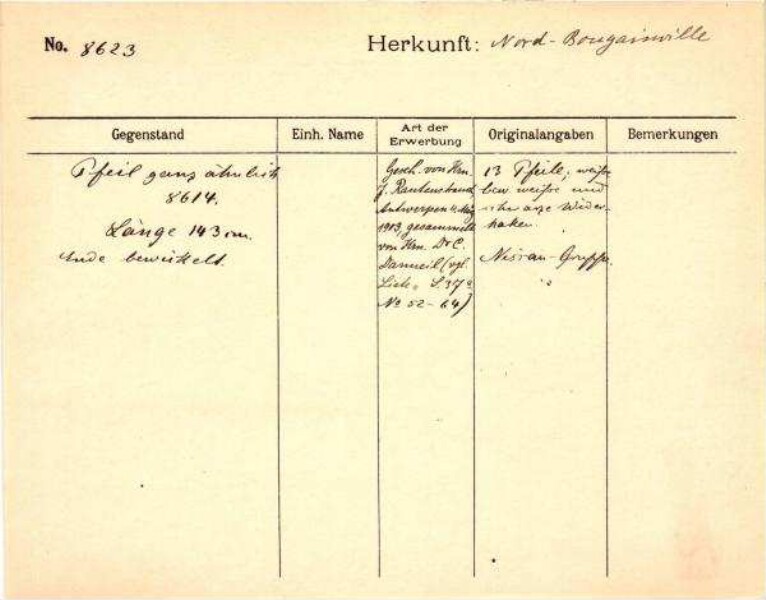 No. 8623
Herkunft: Nord-Bougainville
Gegenstand
Einh. Name
Art der Erwerbung
Originalangaben
Bemerkungen
Pfeil ganz ähnlich
8614.
Länge 143 cm.
Ende bewickelt.
Gesch. von Hrn.
J. Rautenstrauch
Antwerpen
1903, gesammelt
von Hrn. Dr C.
Danneil (vgl.
Liste S. 37
No 52-64)
13 Pfeile;
ben weiße und
schwarze Wider-
haken.
Nissan-Gruppe.